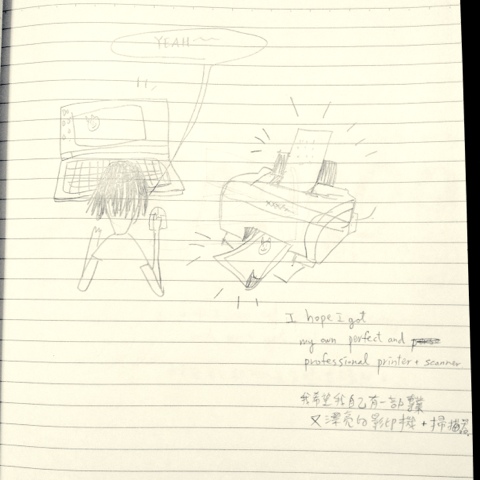 YEAH~~
I hope I got
my own perfect and
professional printer + scanner
我希望我自己有一款專業
又漂亮的影印機 + 掃描器